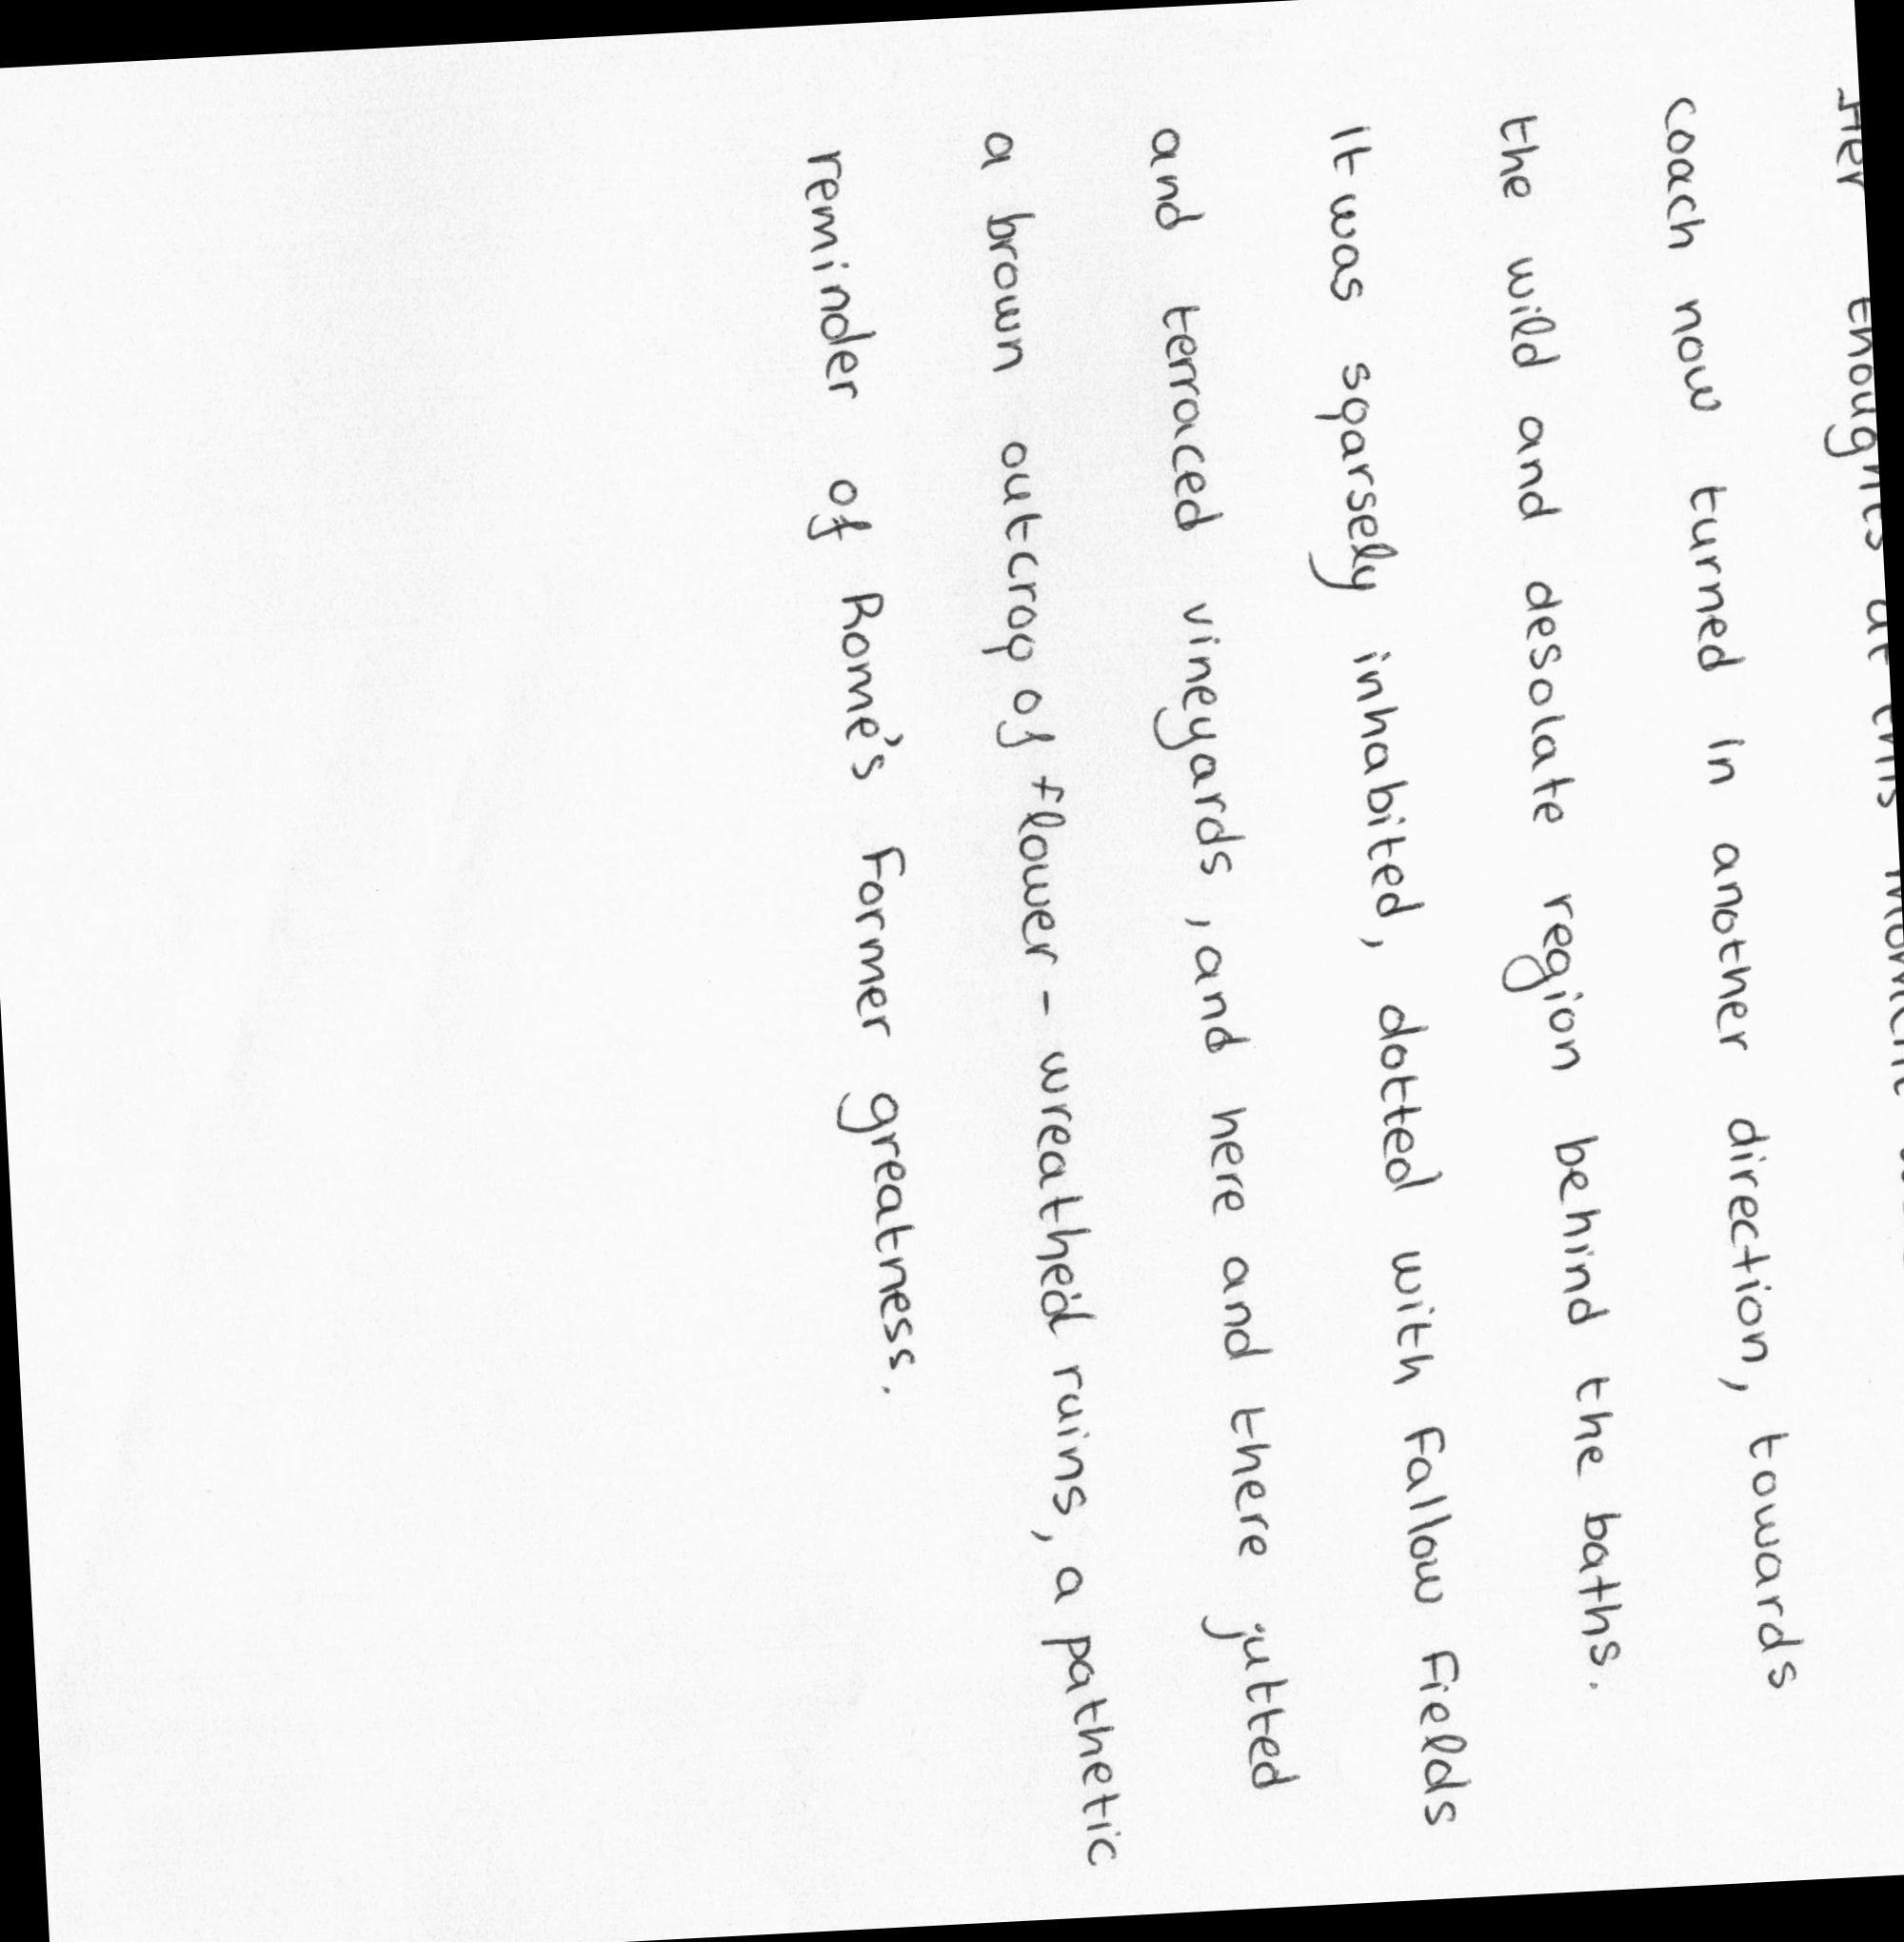 Her thoughts at this moment
coach now turned in another direction, towards
the wild and desolate region behind the baths.
It was sparsely inhabited, dotted with fallow fields
and terraced vineyards, and here and there jutted
a brown outcrop of flower-wreathed ruins, a pathetic
reminder of Rome's former greatness.